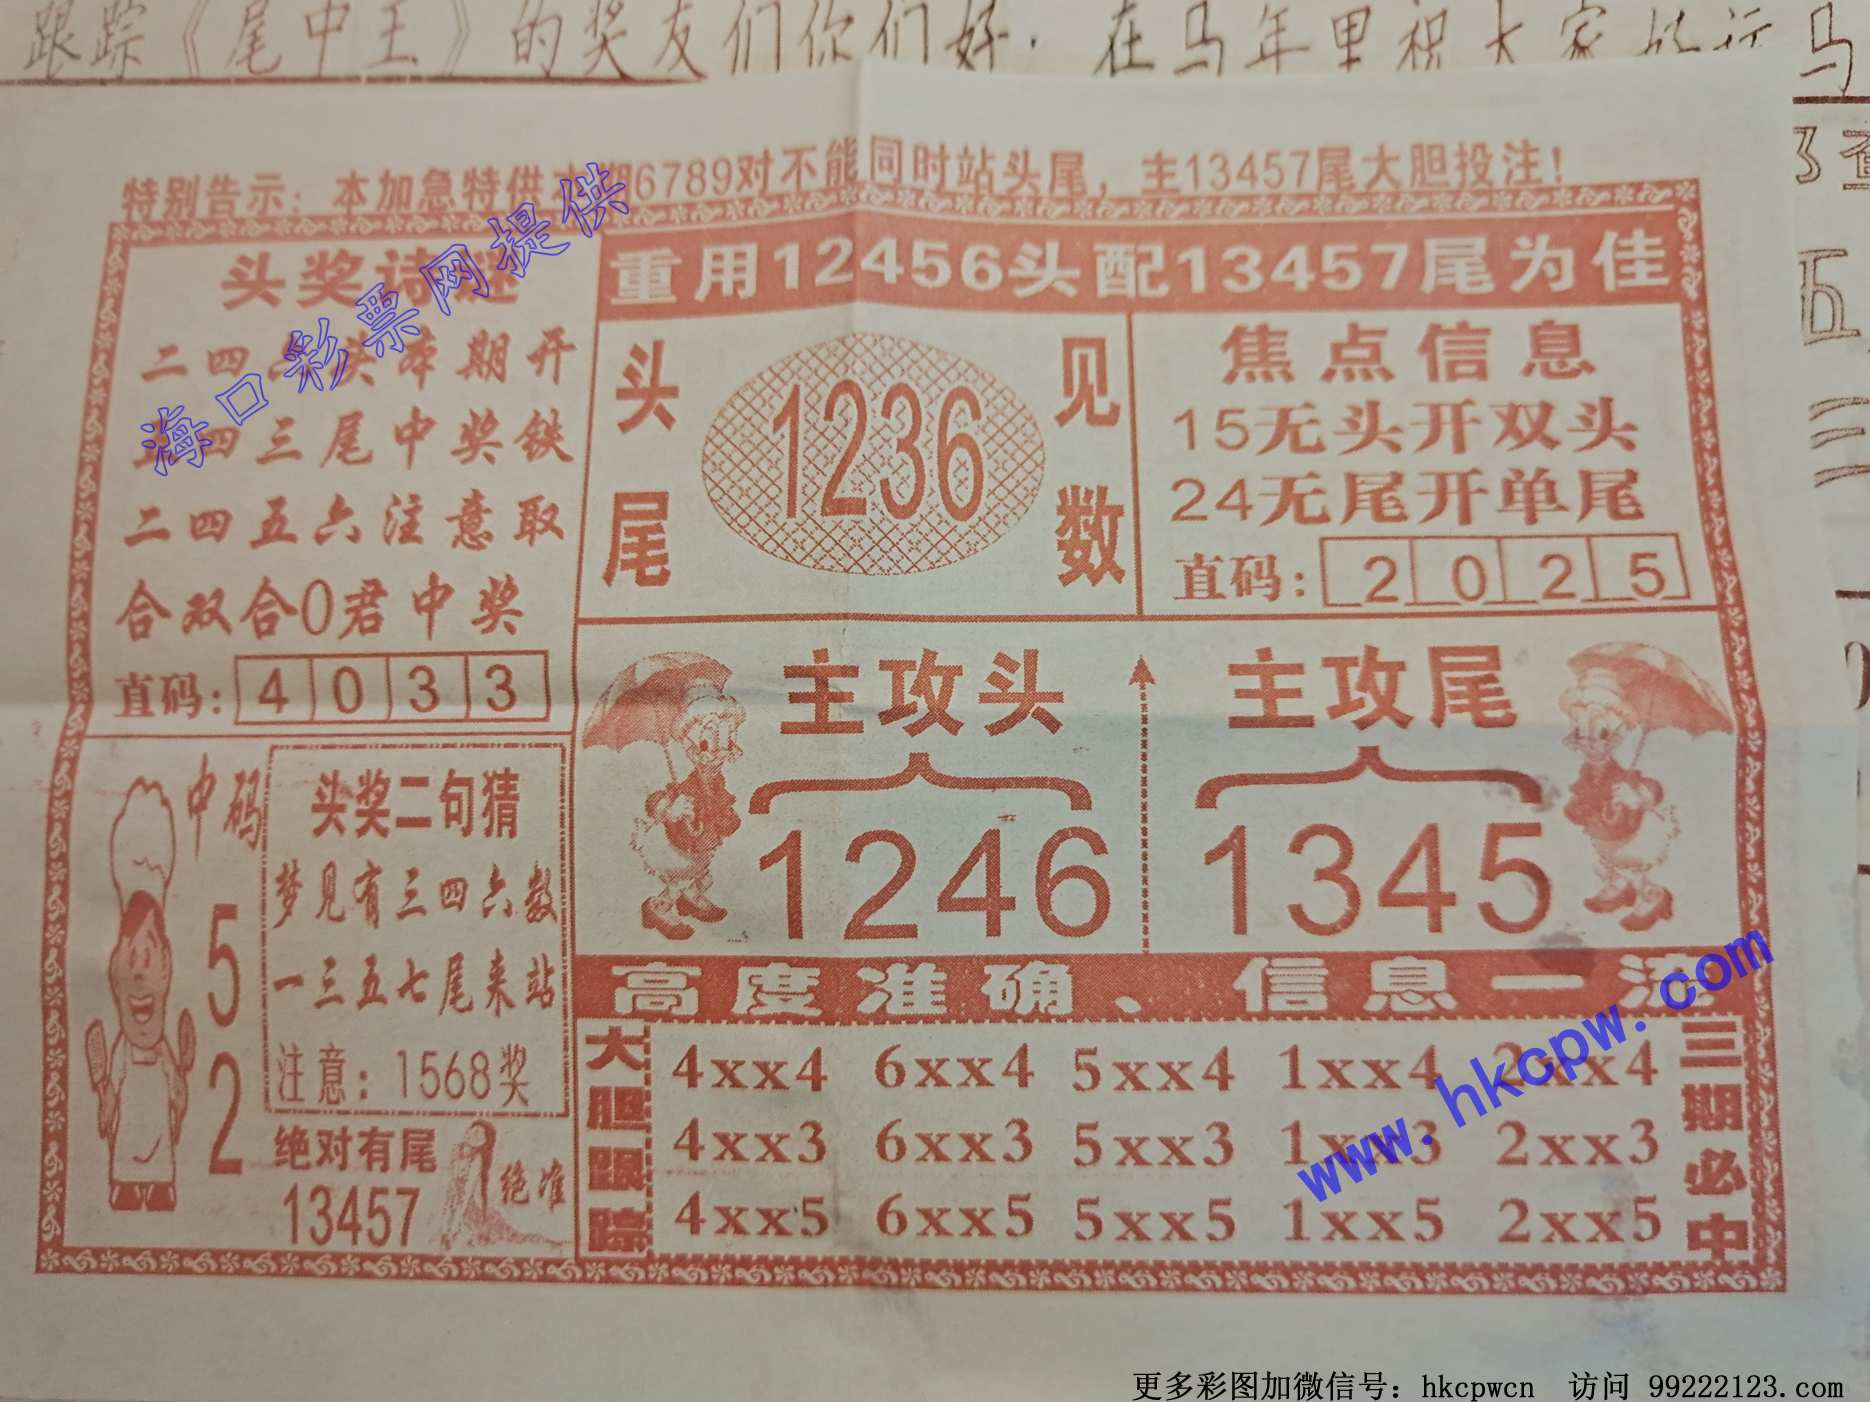 跟踪《尾中王》的奖友们你们好.在马年里祝大家
马
特别告示：本加急特供本期6789对不能同时站头尾，主13457尾大胆投注！
头奖诗谜
二四六头本期开
四三尾中奖铁
二四五六注意取
合双合0君中奖
直码：4 0 3 3
重用12456头配13457尾为佳
头尾
1236
见数
焦点信息
15无头开双头
24无尾开单尾
直码：2 0 2 5
主攻头
1246
主攻尾
1345
中码
5
2
头奖二句猜
梦见有三四六数
一三五七尾来站
注意：1568奖
绝对有尾
13457
绝准
高度准确、信息一流
大胆跟踪
4xx4 6xx4 5xx4 1xx4 2xx4
4xx3 6xx3 5xx3 1xx3 2xx3
4xx5 6xx5 5xx5 1xx5 2xx5
三期必中
海口彩票网提供
www.hkcpw.com
更多彩图加微信号：hkcpwcn 访问 99222123.com